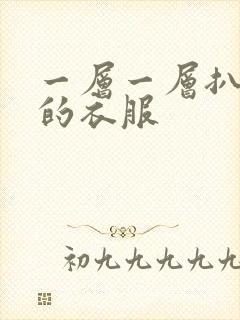 一層一層扒
的衣服
初九九九九九